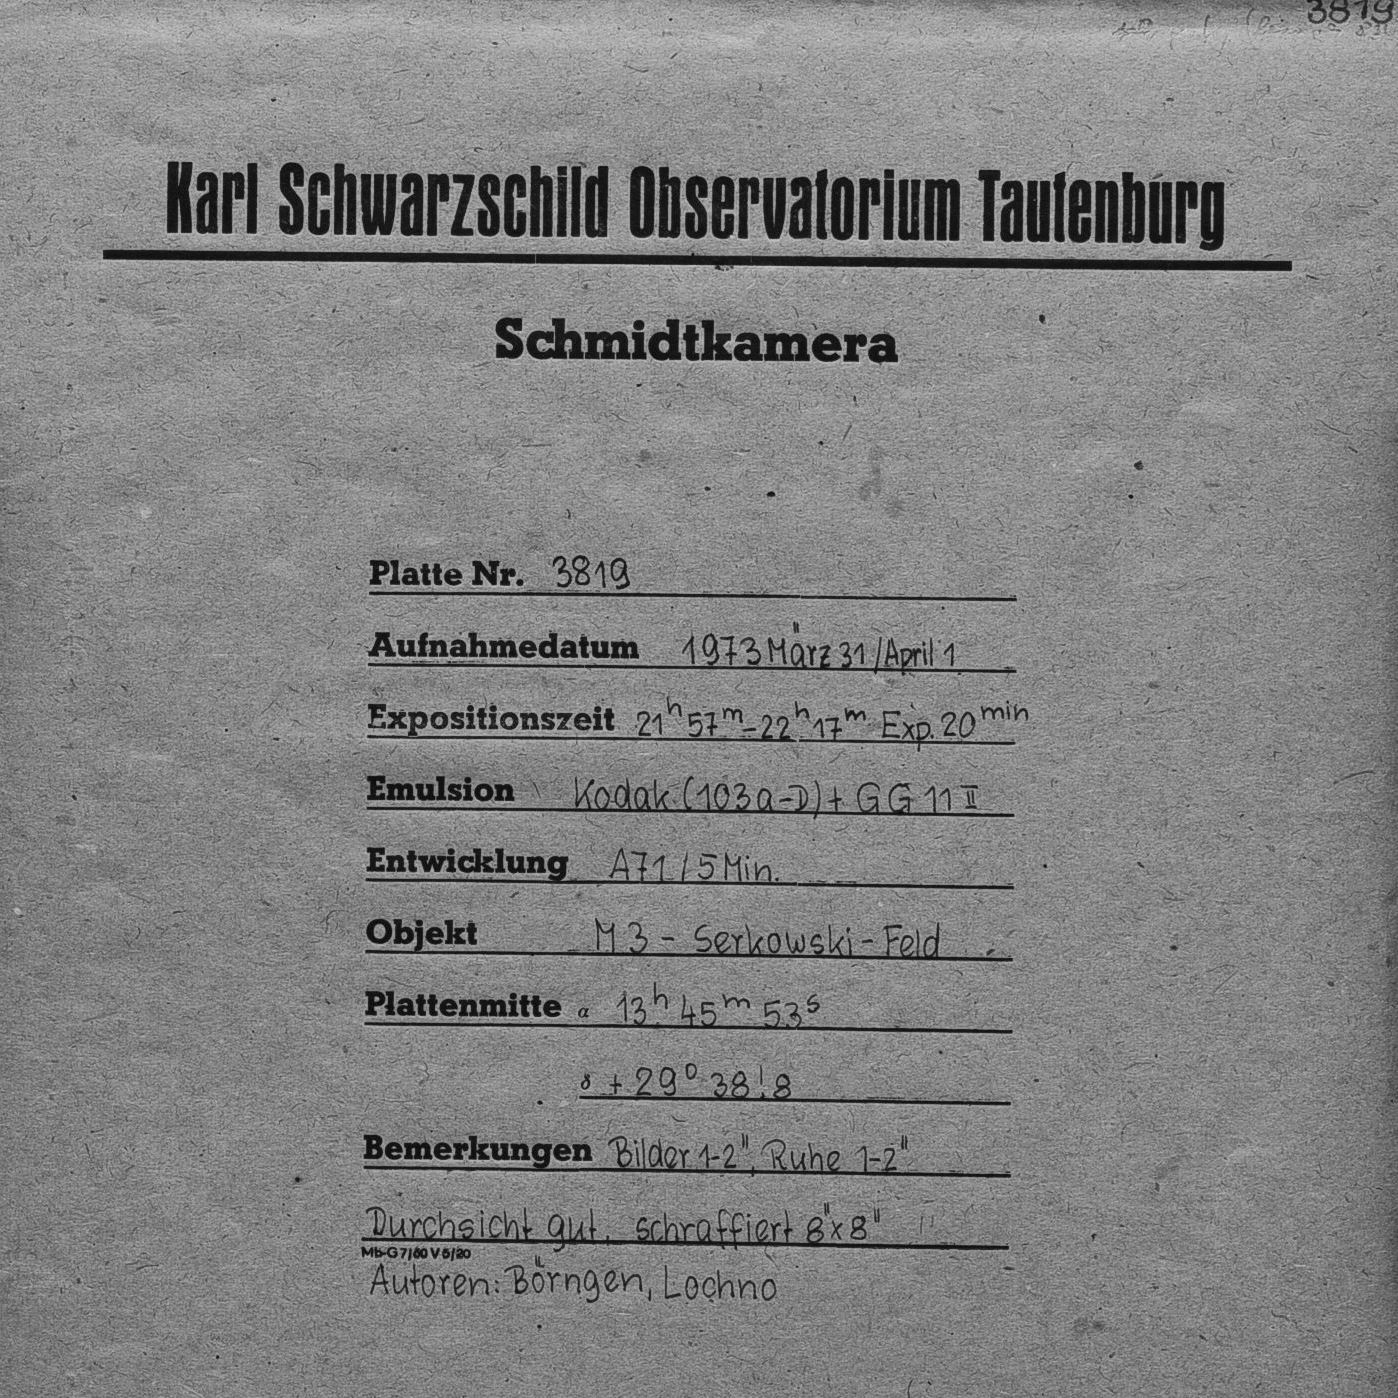 3819
Karl Schwarzschild Observatorium Tautenburg
Schmidtkamera
Platte Nr. 3819
Aufnahmedatum 1973 März 31/April 1
Expositionszeit 21h 57m-22h 17m Exp. 20min
Emulsion Kodak (103a-D)+ GG 11 II
Entwicklung A71/5 Min.
Objekt M 3 - Serkowski-Feld
Plattenmitte α 13h 45m 53s
δ +29° 38!8
Bemerkungen Bilder 1-2", Ruhe 1-2"
Durchsicht gut, schraffiert 8"x8"
Mb-G 7/60 V 5/20
Autoren: Börngen, Lochno